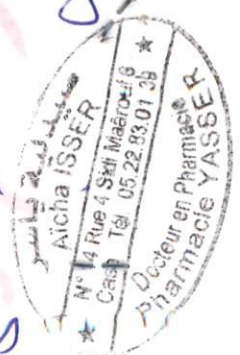 Aïcha ISSER
N° 14 Rue 4 Sidi Maârouf 6
Casa Tél 05.22.93.01 39
Docteur en Pharmacie
Pharmacie YASSER